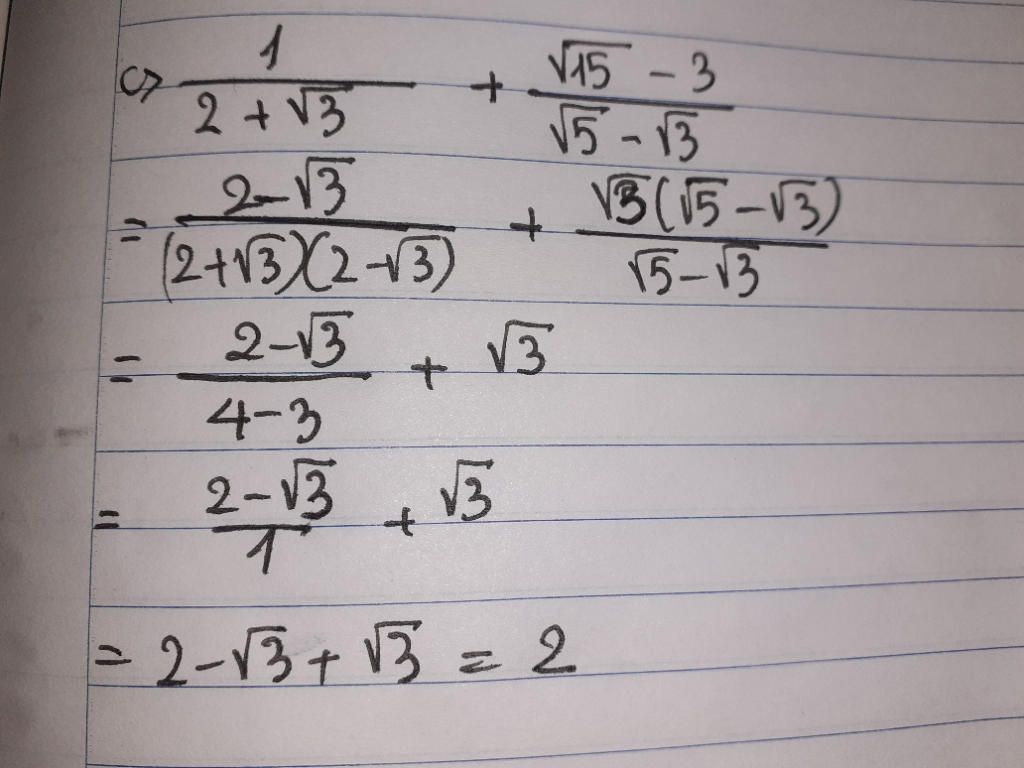 ⇔ 1/(2 + √3) + (√15 - 3)/(√5 - √3)
= (2-√3)/((2+√3)(2-√3)) + √3(√5-√3)/(√5-√3)
= (2-√3)/(4-3) + √3
= (2-√3)/1 + √3
= 2-√3+√3 = 2